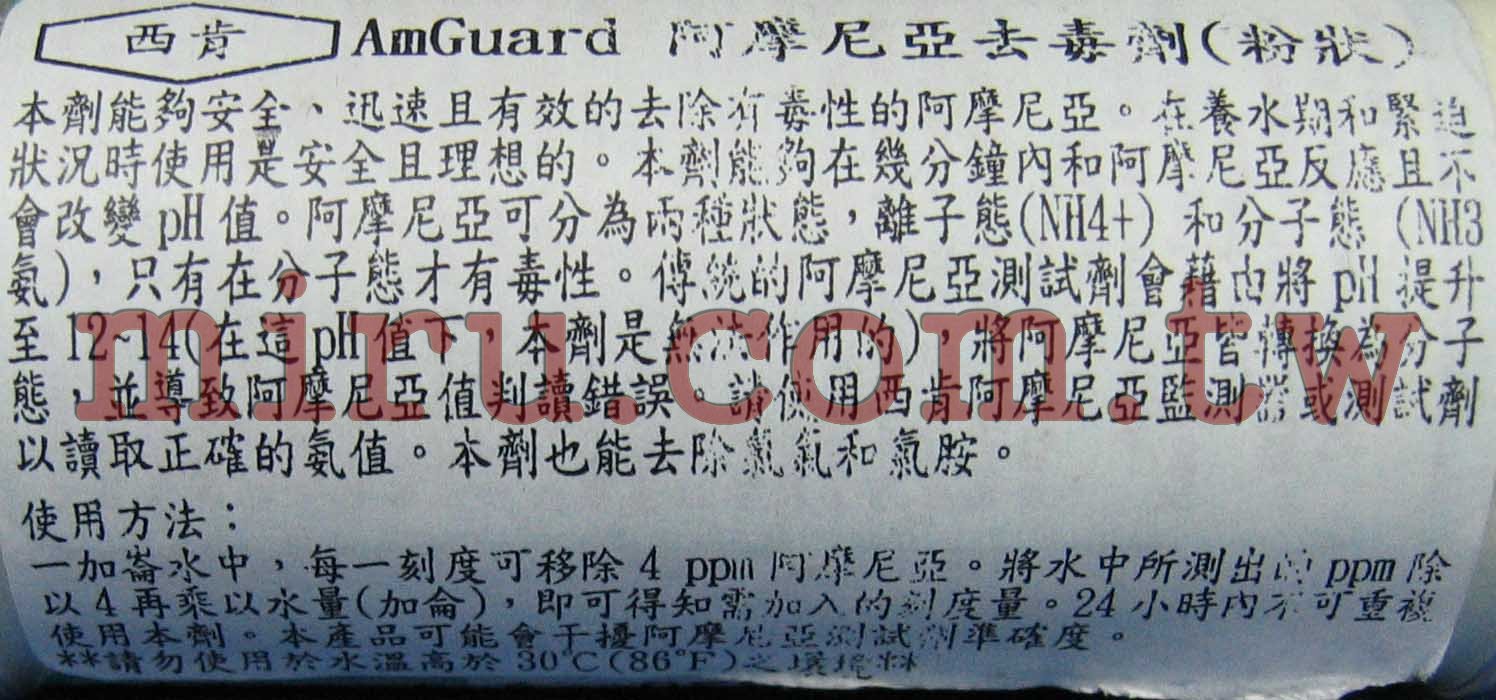 西肯 AmGuard 阿摩尼亞去毒劑(粉狀)
本劑能夠安全、迅速且有效的去除有毒性的阿摩尼亞。在養水期和緊迫
狀況時使用是安全且理想的。本劑能夠在幾分鐘內和阿摩尼亞反應且不
會改變pH值。阿摩尼亞可分為兩種狀態，離子態(NH4+) 和分子態 (NH3
氨)，只有在分子態才有毒性。傳統的阿摩尼亞測試劑會藉由將pH提升
至12~14(在這pH值下，本劑是無法作用的)，將阿摩尼亞皆轉換為分子
態，並導致阿摩尼亞值判讀錯誤。請使用西肯阿摩尼亞監測器或測試劑
以讀取正確的氨值。本劑也能去除氯氣和氯胺。
miru.com.tw
使用方法：
一加崙水中，每一刻度可移除4 ppm阿摩尼亞。將水中所測出的ppm除
以4再乘以水量(加侖)，即可得知需加入的刻度量。24小時內不可重複
使用本劑。本產品可能會干擾阿摩尼亞測試劑準確度。
**請勿使用於水溫高於30℃(86°F)之環境